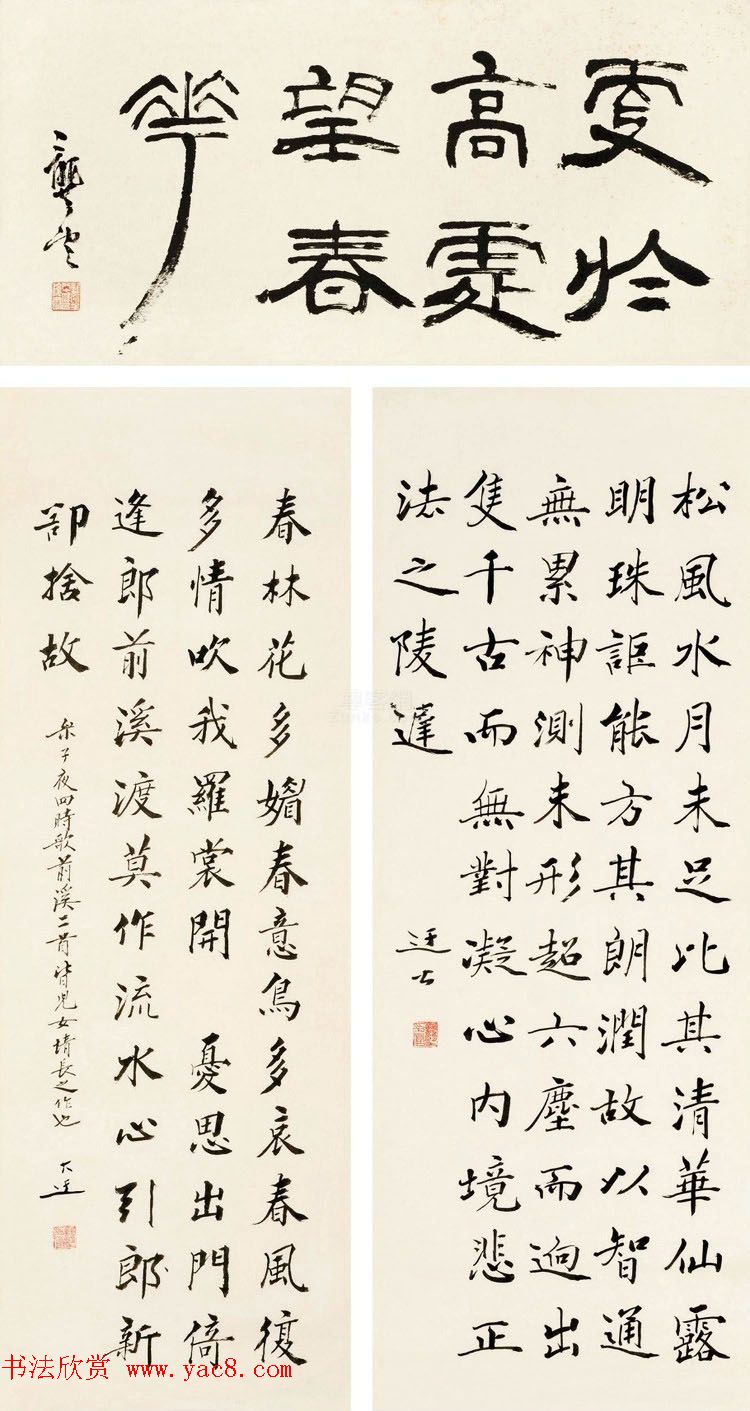 更於
高處
望春
華
龔望
松風水月未足比其清華仙露
明珠詎能方其朗潤故以智通
無累神測未形超六塵而迥出
隻千古而無對凝心內境悲正
法之陵遲
迂士
春林花多媚春意鳥多哀春風復
多情吹我羅裳開 憂思出門倚
逢郎前溪渡莫作流水心引郎新
都捨故
樂子夜四時歌前溪二首皆兒女情長之作也 大迂
书法欣赏 www.yac8.com